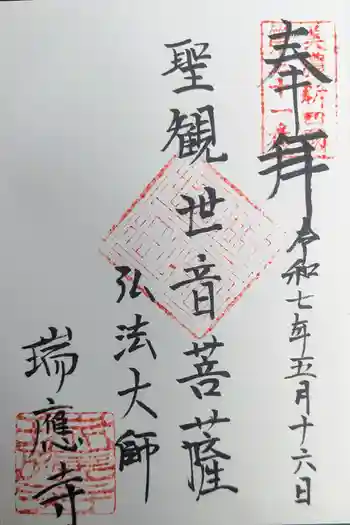 奉拝
令和七年五月十六日
聖観世音菩薩
弘法大師
瑞應寺